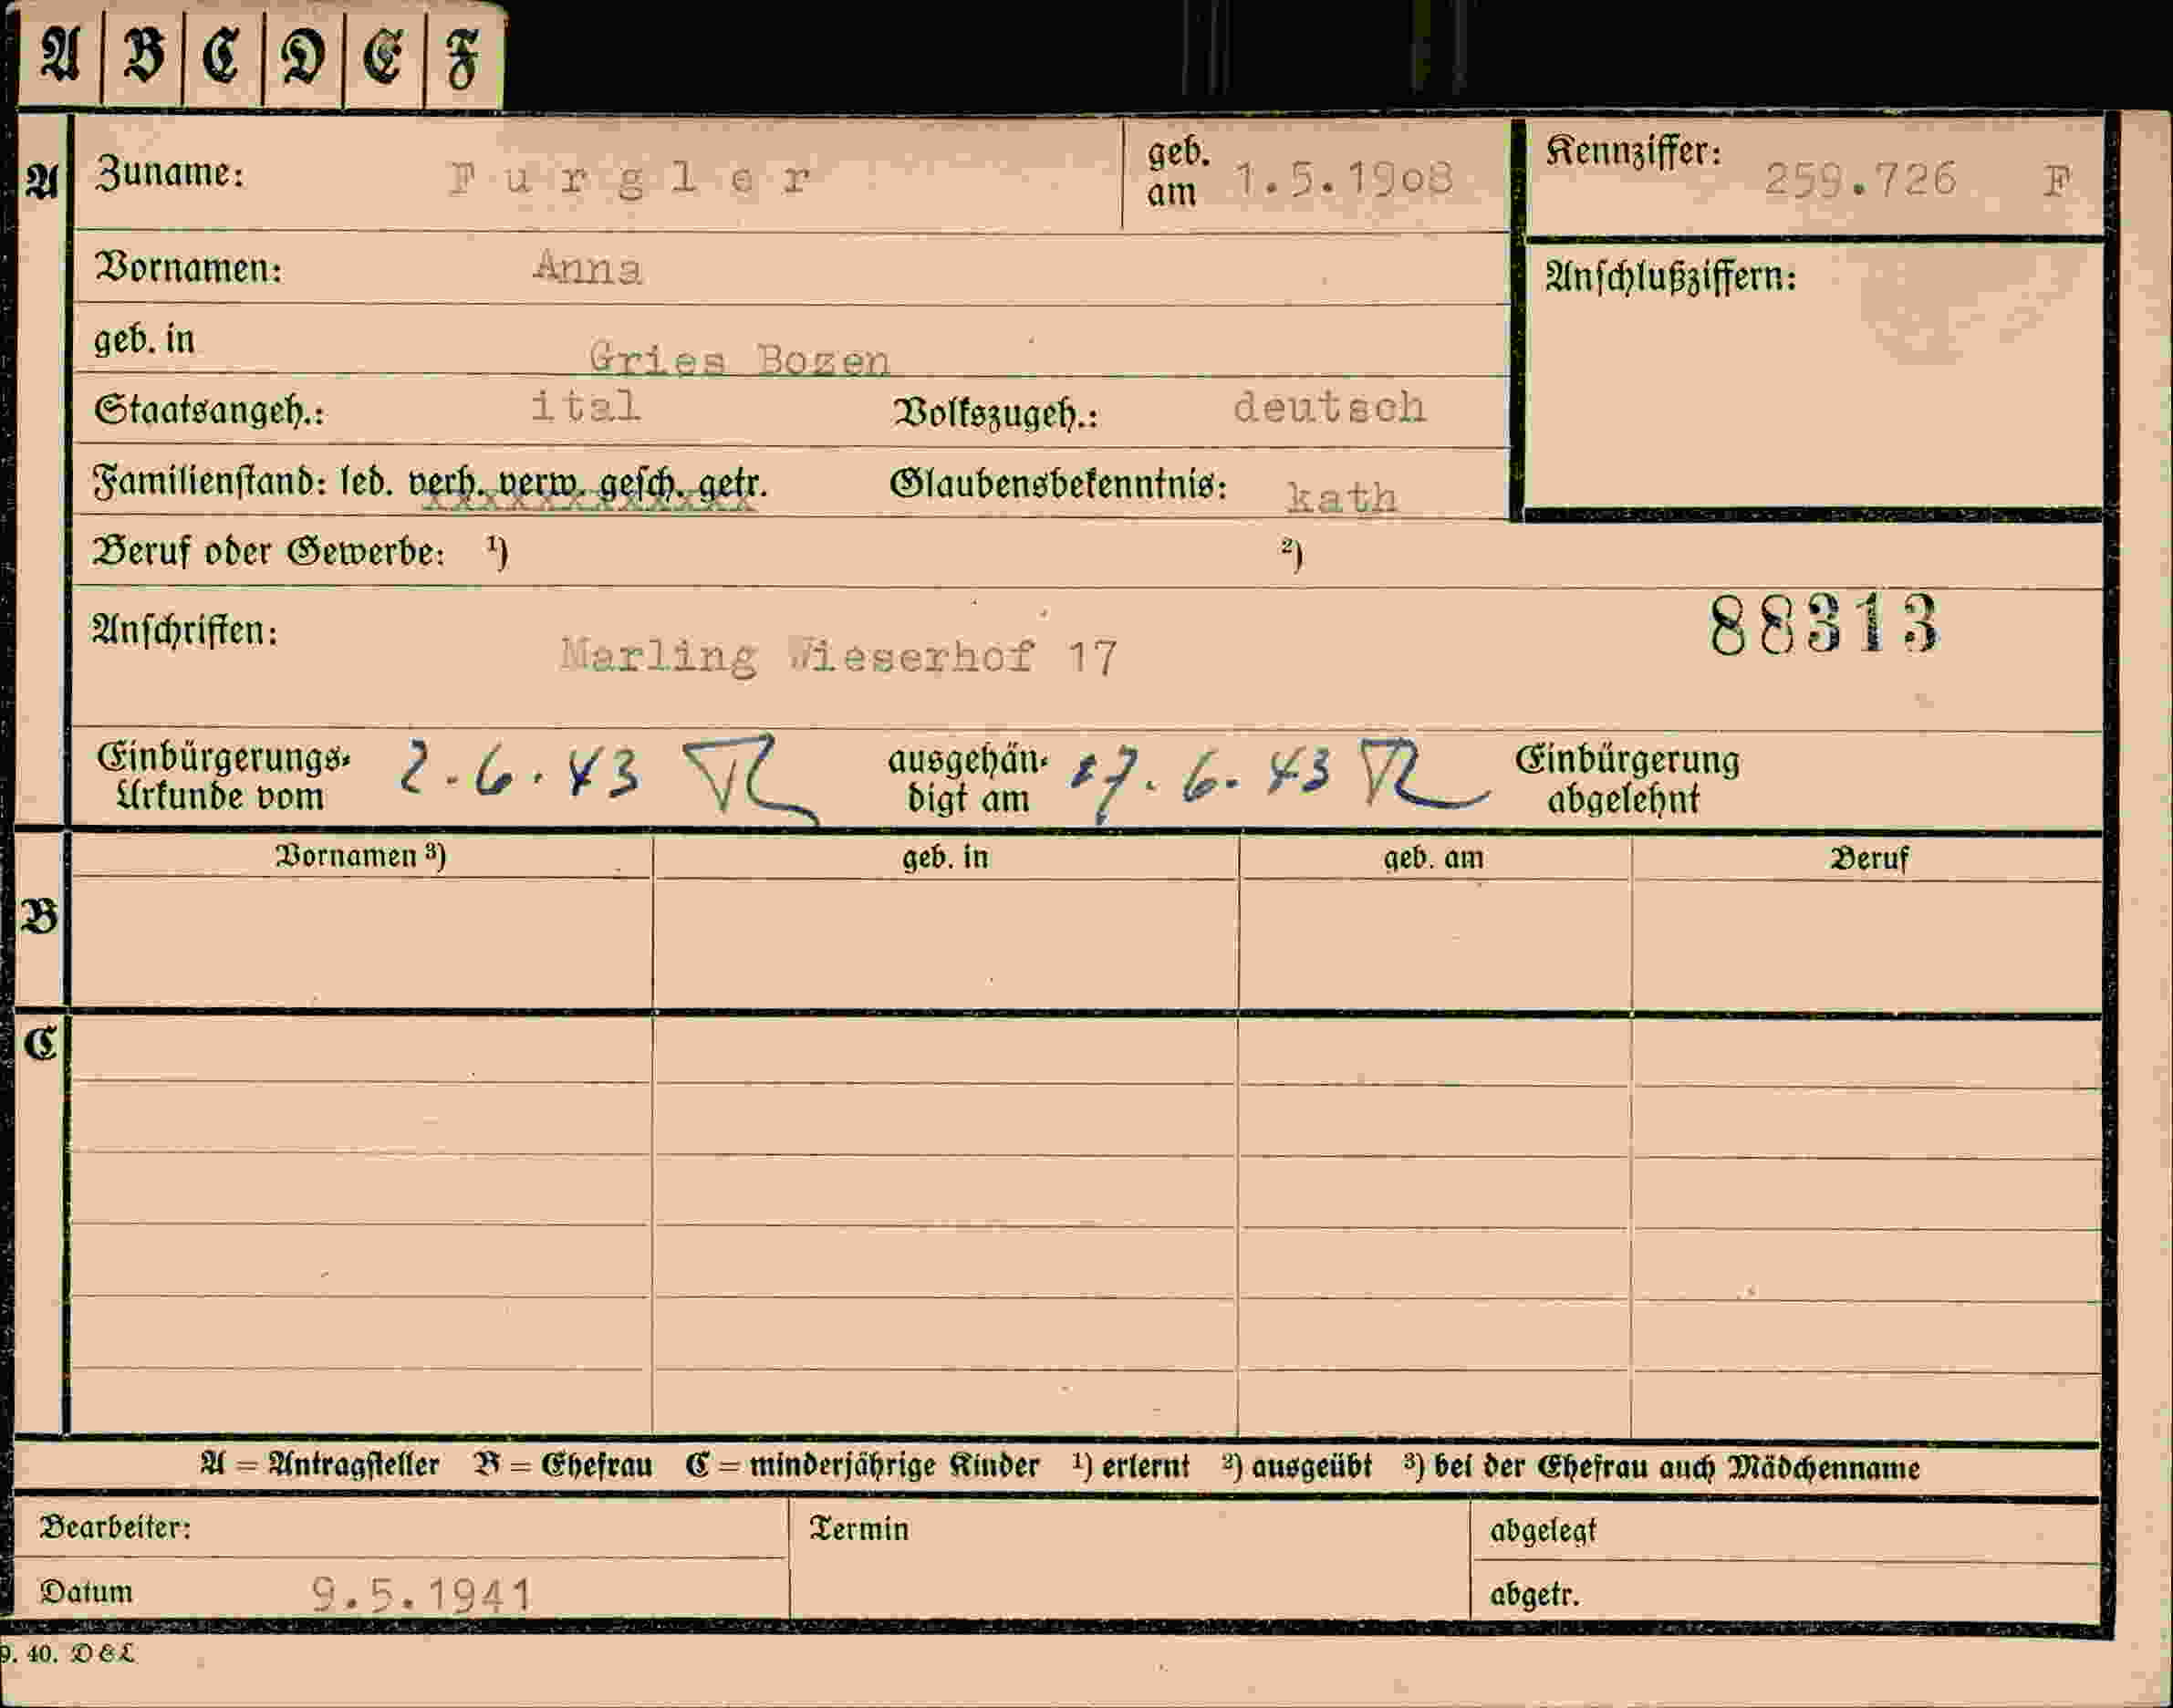 A B C D E F
A Zuname: Furgler geb. am 1.5.1908 Kennziffer: 259.726 F
Vornamen: Anna Anschlußziffern:
geb. in Gries Bozen
Staatsangeh.: ital Volkszugeh.: deutsch
Familienstand: led. verh. verw. gesch. getr. Glaubensbekenntnis: kath
Beruf oder Gewerbe: ¹) ²)
88313
Anschriften: Marling Wieserhof 17
Einbürgerungs-Urkunde vom 2.6.43 ausgehändigt am 17.6.43 Einbürgerung abgelehnt
Vornamen ³) geb. in geb. am Beruf
B
C
A = Antragsteller B = Ehefrau C = minderjährige Kinder ¹) erlernt ²) ausgeübt ³) bei der Ehefrau auch Mädchenname
Bearbeiter: Termin abgelegt
Datum 9.5.1941 abgetr.
9. 40. D & L